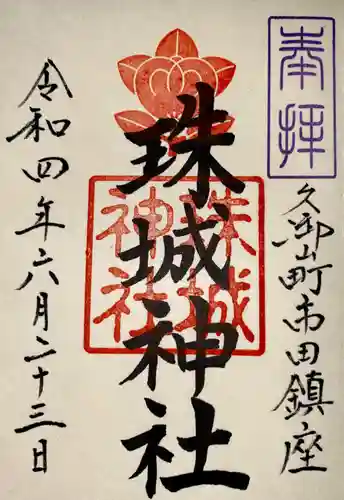 奉拝
久御山町市田鎮座
珠城神社
珠城神社
令和四年六月二十三日